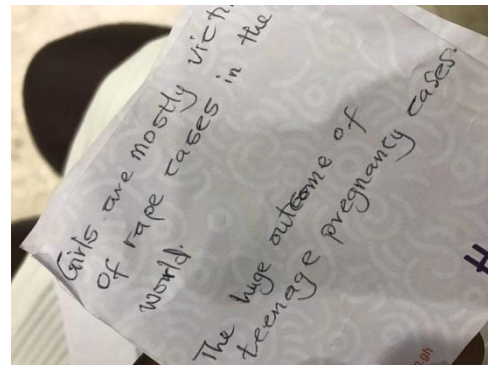 Girls are mostly
of rape cases in the
world.
The huge outcome of
teenage pregnancy cases.
H
.gh